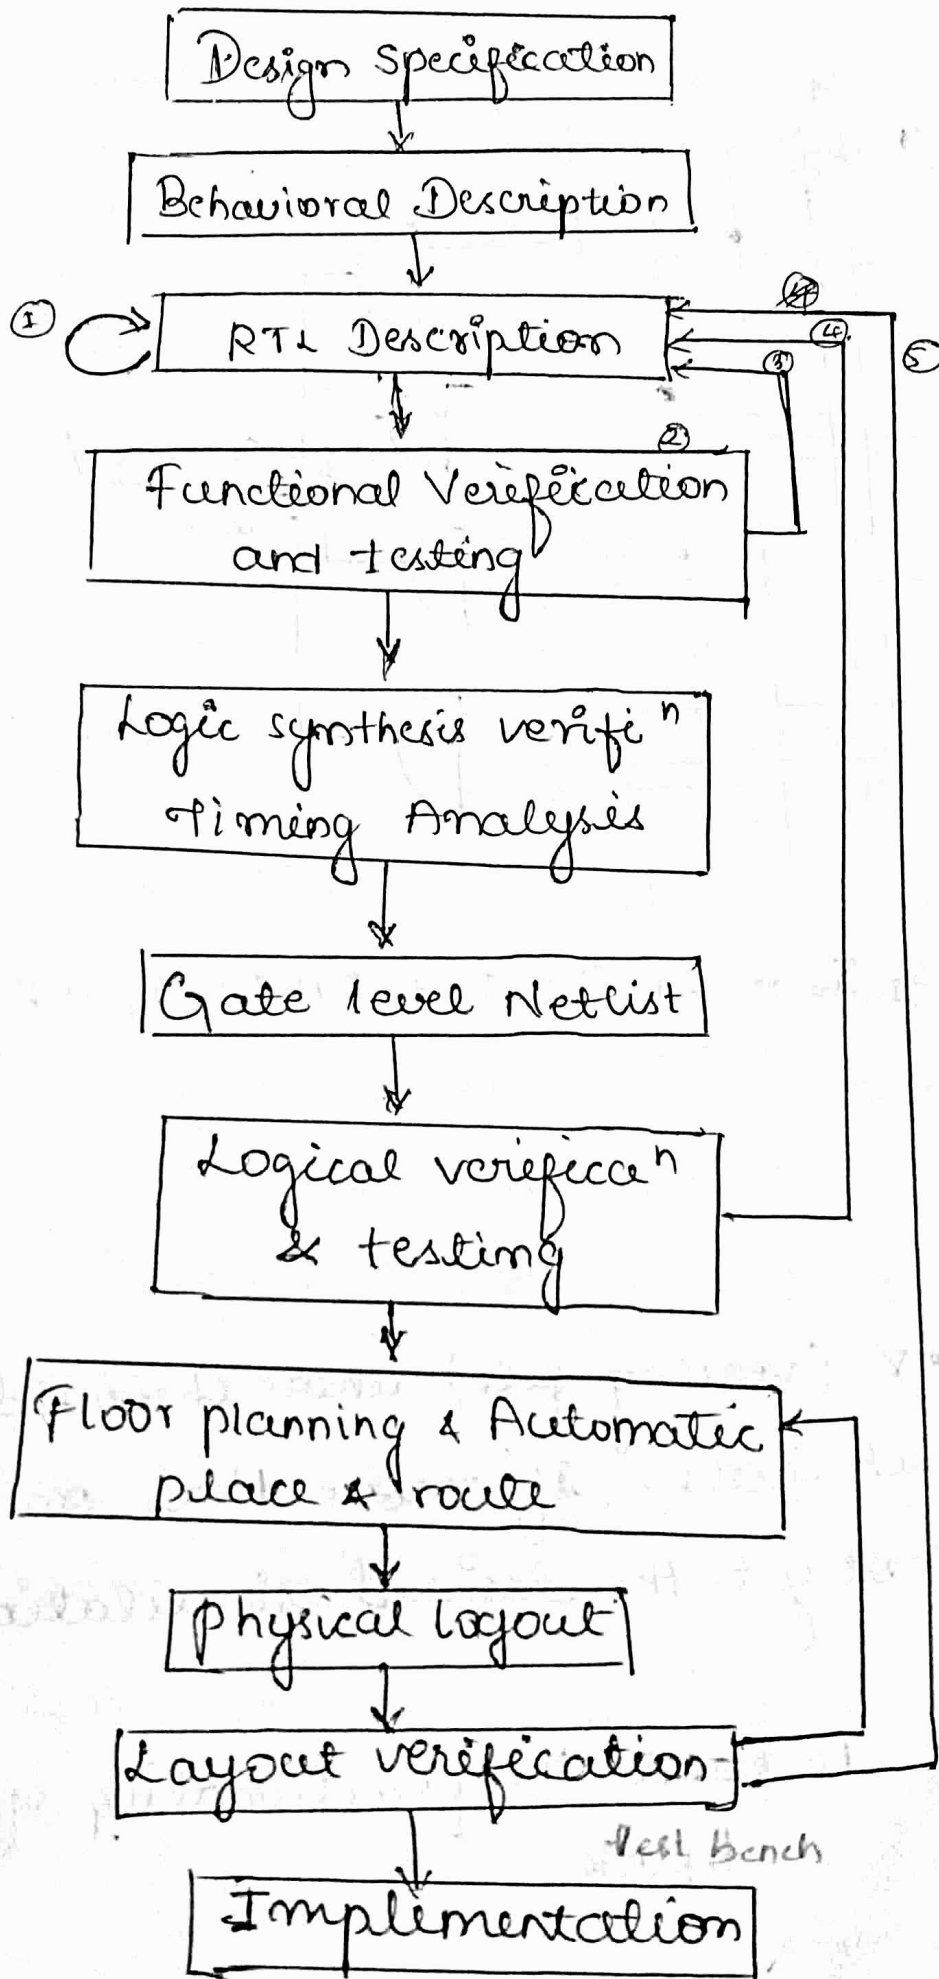 Design Specification
Behavioral Description
①
RTL Description
④
③
5
②
Functional Verification
and testing
Logic synthesis verifi n
Timing Analysis
Gate level Netlist
Logical verifica n
& testing
Floor planning & Automatic
place & route
Physical layout
Layout verification
Test bench
Implimentation